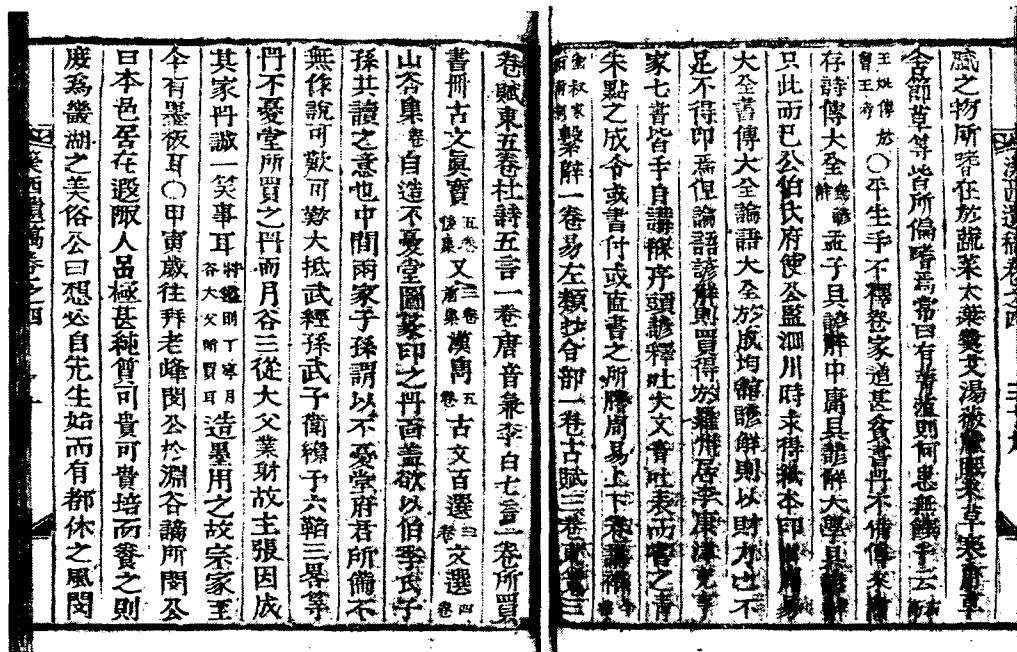 之物所嗜在於蔬菜太葉羹艾湯薇蕨
等皆所偏嗜焉常曰有菁菹則何患無饌乎云
〇平生手不釋卷家道甚貧書冊不備傳來
存詩傳大全無諺解孟子具諺解中庸具諺解大學具諺解
只此而已公伯氏府使公監泗川時求得紙本印周易
大全書傳大全論語大全於成均館諺解則以財力也不
足不得印焉但論語諺解則買得於羅州居李康津克亨
家七書皆手自講釋序頭諺釋吐大文音吐表而書之青
朱點之成令或書付或直書之所謄周易上下卷講補
繫辭一卷易左類抄合部一卷古賦三卷東策三
卷賦東五卷杜詩五言一卷唐音兼李白七言二卷所買
書冊古文眞寶五卷後集又三卷前集漢雋五卷古文百選三卷文選四卷
山谷集卷自造不憂堂圖篆印之冊面盖欲以伯季氏子
孫共讀之意也中間兩家子孫謂以不憂堂府君所備不
無作說可歎可歎大抵武經孫武子衛繚子六韜三畧等
冊不憂堂所買之冊而月谷三從大父業射故主張因成
其家冊誠一笑事耳將鑑則丁寧月谷大父所買耳造墨用之故宗家至
今有墨板耳〇甲寅歲往拜老峰閔公於淵谷謫所閔公
曰本邑居在遐陬人品極甚純質可貴可貴培而養之則
庶爲幾湖之美俗公曰想必自先生始而有都休之風閔